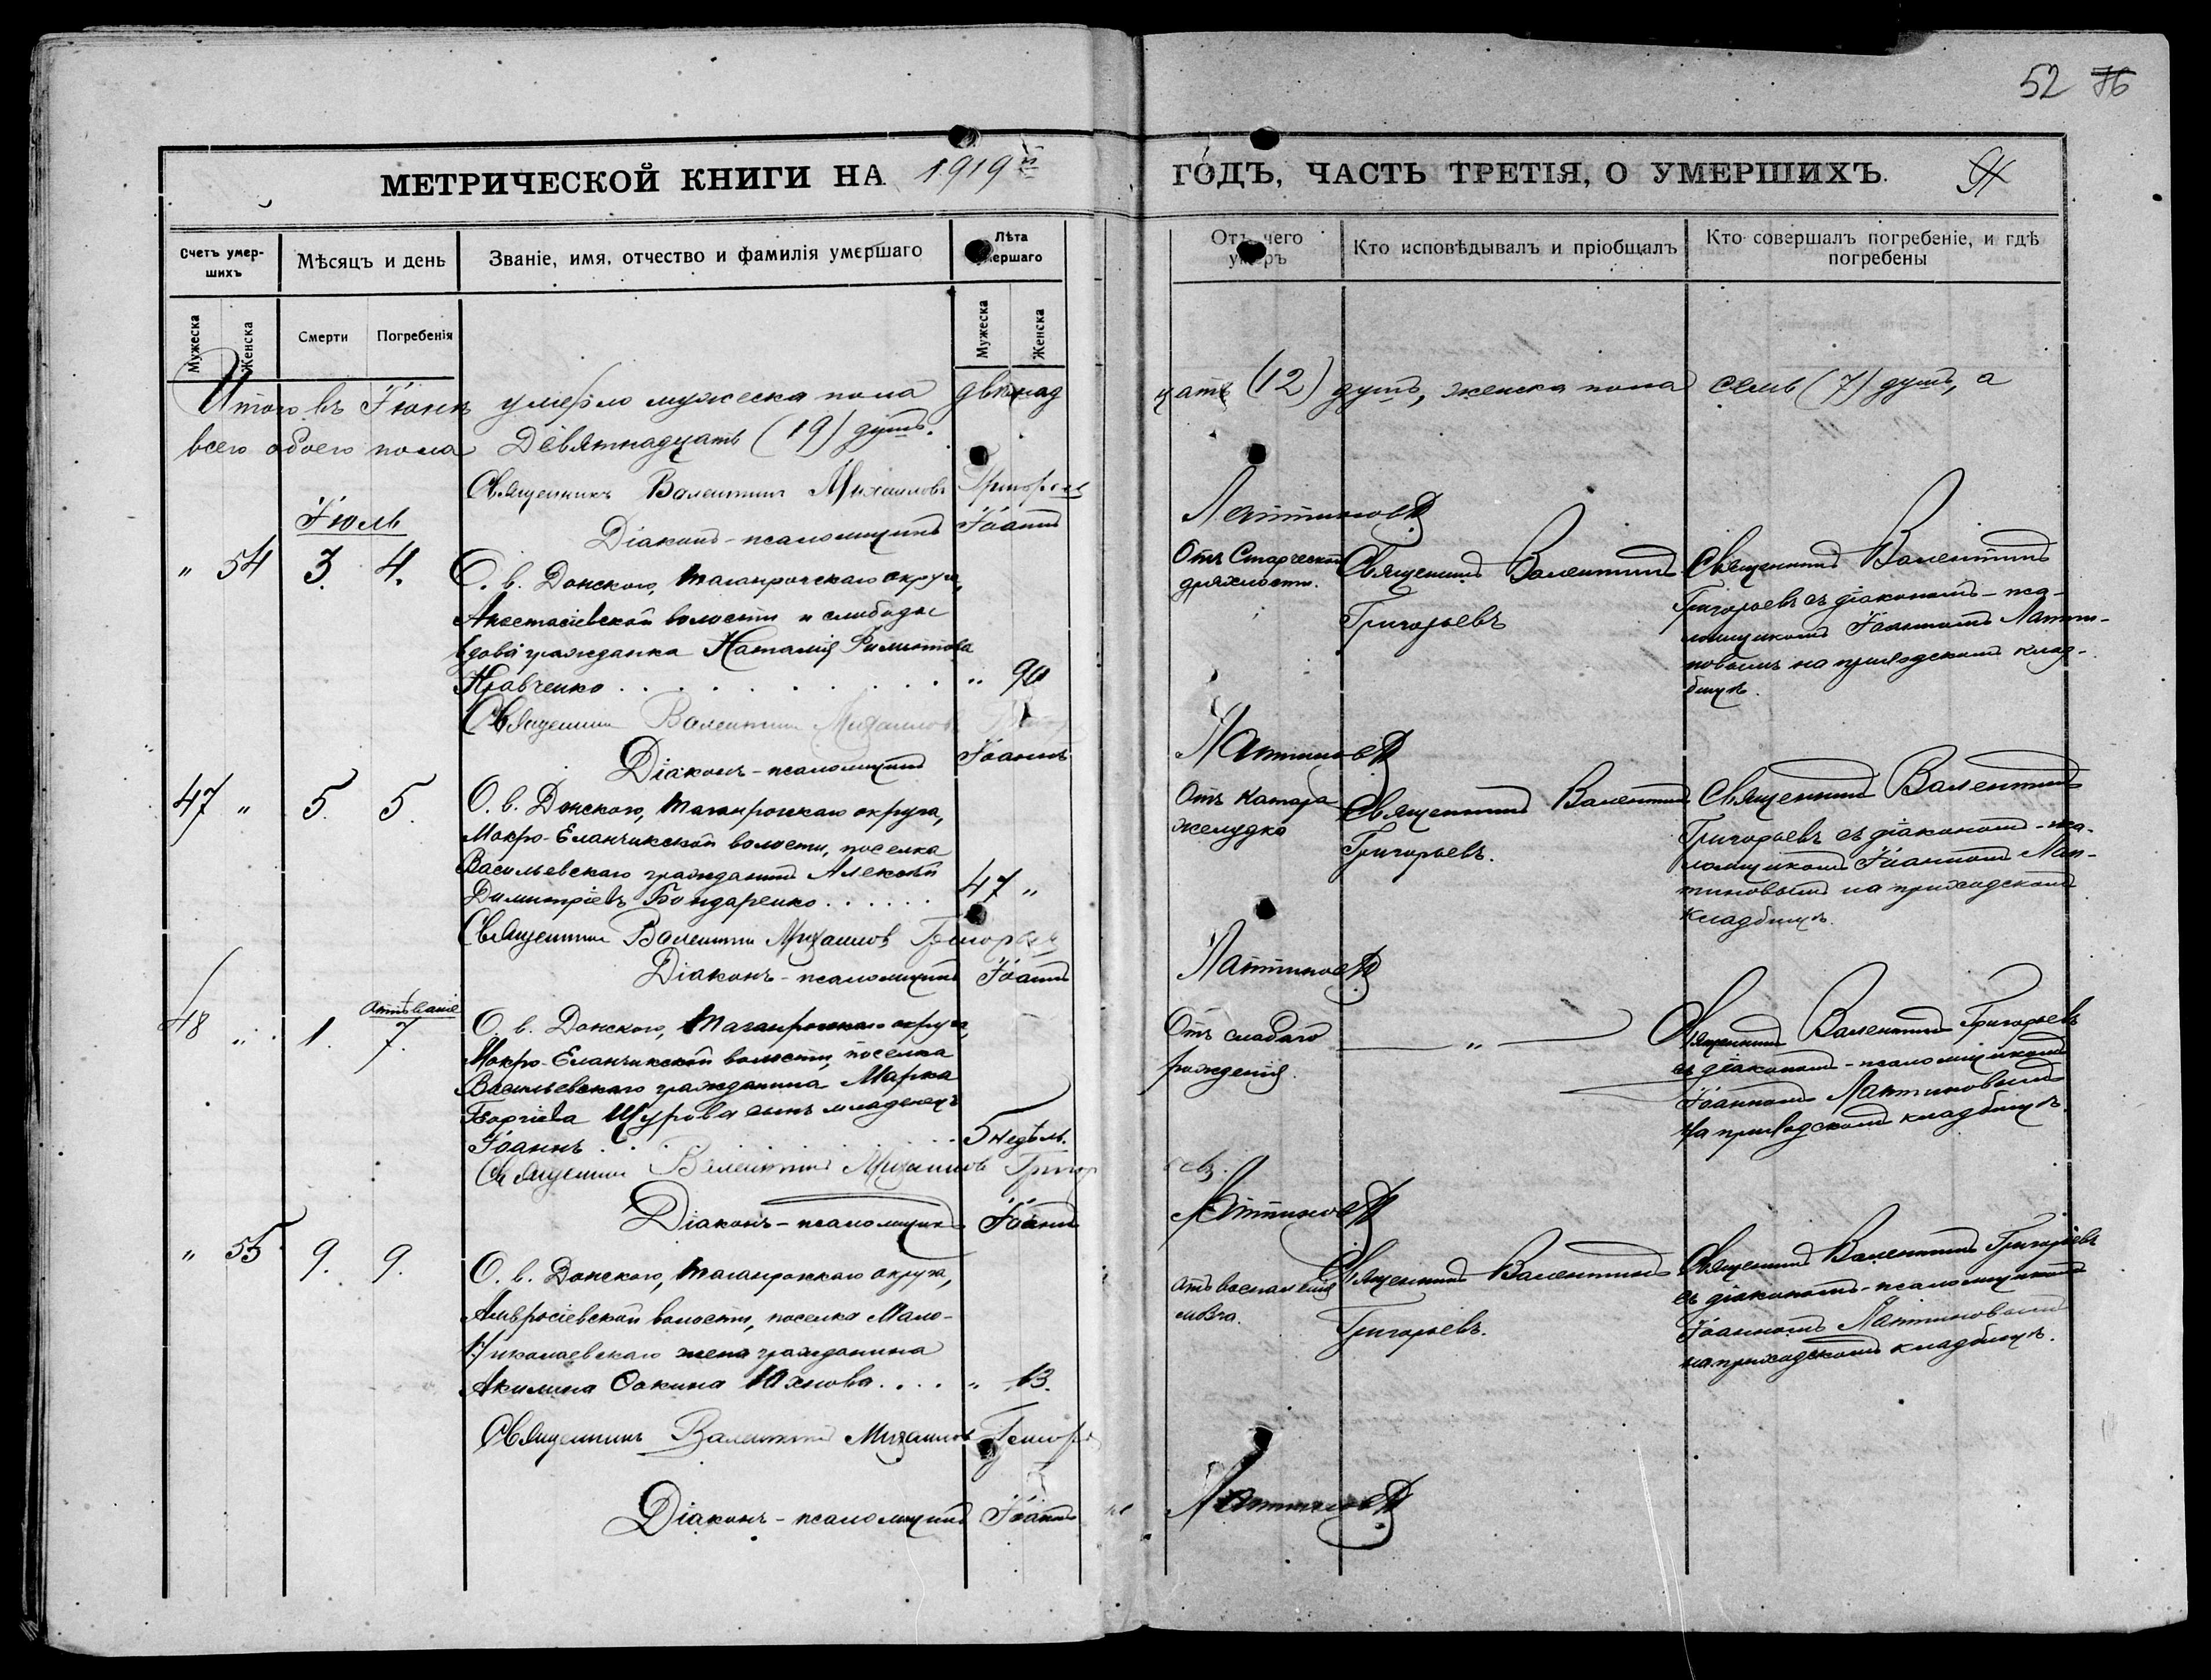 52 76
МЕТРИЧЕСКОЙ КНИГИ НА 1919й ГОДЪ, ЧАСТЬ ТРЕТІЯ, О УМЕРШИХЪ.
Счетъ умер-
шихъ
Мѣсяцъ и день
Званіе, имя, отчество и фамилія умершаго
Лѣта
умершаго
Отъ чего
умеръ
Кто исповѣдывалъ и пріобщалъ
Кто совершалъ погребеніе, и гдѣ
погребены
Мужеска
Женска
Смерти
Погребенія
Мужеска
Женска
Итого въ Іюнѣ умерло мужеска пола двѣнад
цать (12) душъ, женска пола семь (7) душъ, а
всего обоего пола девятнадцать (19) душъ.
Священникъ Валентинъ Михаиловъ Григорьевъ
Діаконъ-псаломщикъ Іоаннъ Лаптиновъ
Іюль
" 54 3. 4.
О. в. Донского, Таганрогскаго округа,
Анастасіевской волости и слободы
вдова гражданка Наталія Филиппова
Кравченко . . . . . . . . . " 90
Отъ Старческой
дряхлости.
Священникъ Валентинъ
Григорьевъ
Священникъ Валентинъ
Григорьевъ съ діакономъ-пса-
ломщикомъ Іоанномъ Лапти-
новымъ на приходскомъ клад-
бищѣ.
Священникъ Валентинъ Михаиловъ
Діаконъ-псаломщикъ Іоаннъ Лаптиновъ
47 " 5. 5.
О. в. Донского, Таганрогскаго округа,
Мокро-Еланчикской волости, поселка
Васильевскаго гражданинъ Алексѣй
Димитріевъ Бондаренко . . . . . . 47 "
Отъ катара
желудка
Священникъ Валентинъ
Григорьевъ.
Священникъ Валентинъ
Григорьевъ съ діакономъ-пса-
ломщикомъ Іоанномъ Лап-
тиновымъ на приходскомъ
кладбищѣ.
Священникъ Валентинъ Михаиловъ Григорьевъ
Діаконъ-псаломщикъ Іоаннъ Лаптиновъ
48 " 1. отпѣваніе
7.
О. в. Донского, Таганрогскаго округа,
Мокро-Еланчикской волости, поселка
Васильевскаго гражданина Марка
Георгіева Щурова сынъ младенецъ
Іоаннъ . . . . . . . . . 5 недѣль.
Отъ слабаго
рожденія.
"
Священникъ Валентинъ Григорьевъ
съ діакономъ-псаломщикомъ
Іоанномъ Лаптиновымъ
на приходскомъ кладбищѣ.
Священникъ Валентинъ Михаиловъ Григорьевъ.
Діаконъ-псаломщикъ Іоаннъ Лаптиновъ
" 55 9. 9.
О. в. Донского, Таганрогскаго округа,
Амвросіевской волости, поселка Мало-
Николаевскаго жена гражданина
Акилина Юхнова . . . . " 13.
отъ воспаленія
мозга.
Священникъ Валентинъ
Григорьевъ.
Священникъ Валентинъ Григорьевъ
съ діакономъ-псаломщикомъ
Іоанномъ Лаптиновымъ
на приходскомъ кладбищѣ.
Священникъ Валентинъ Михаиловъ Григорьевъ
Діаконъ-псаломщикъ Іоаннъ Лаптиновъ